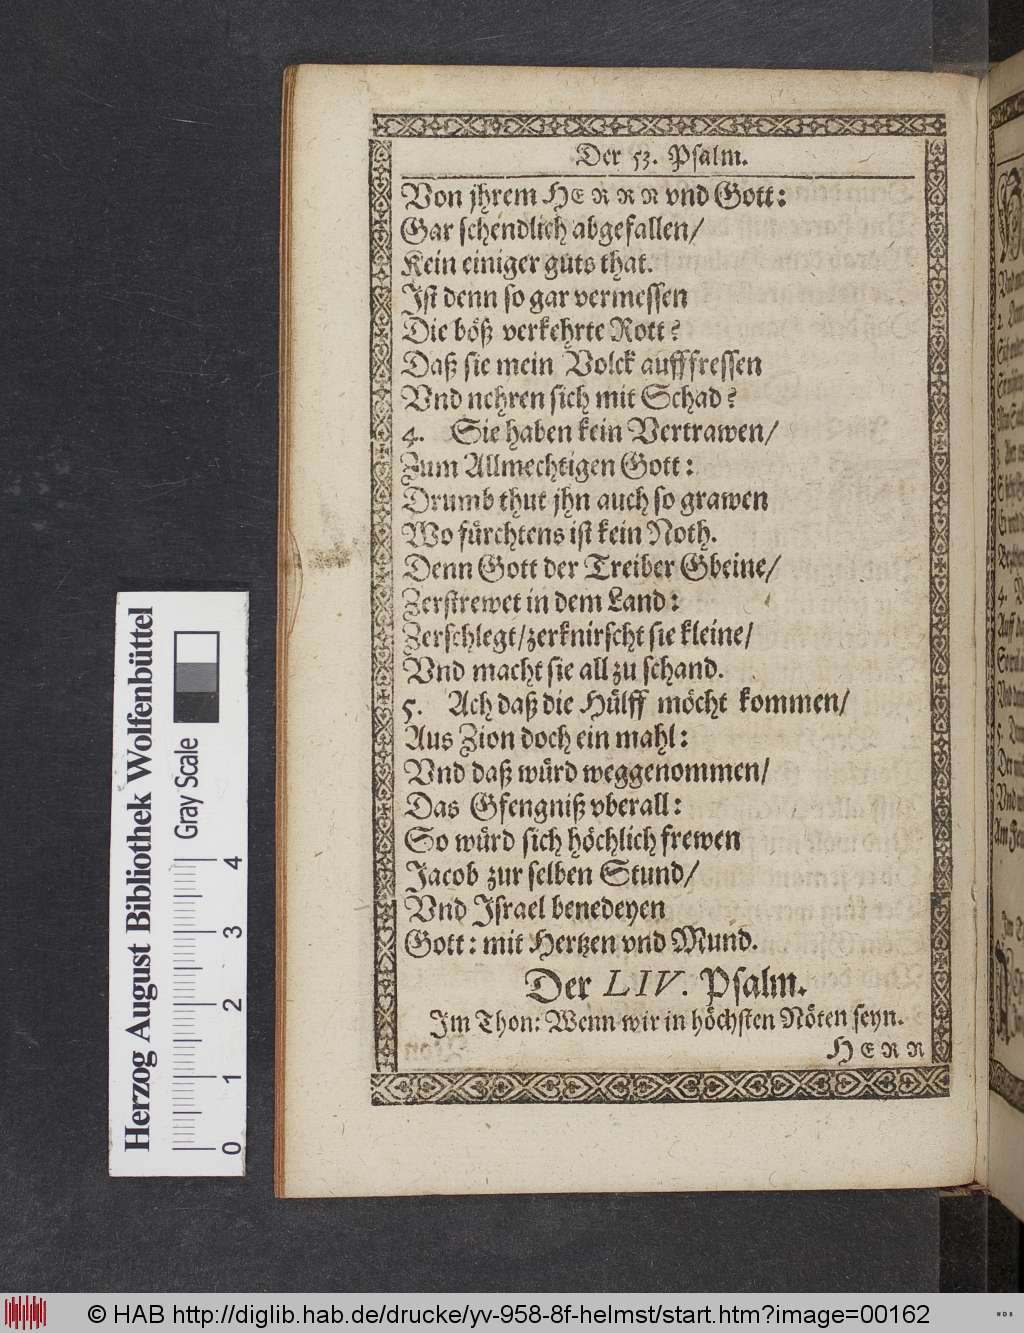 Der 53. Psalm.
Von jhrem HERRN vnd Gott:
Gar schendlich abgefallen/
Kein einiger guts that.
Ist denn so gar vermessen
Die böß verkehrte Rott?
Daß sie mein Volck aufffressen
Vnd nehren sich mit Schad?
4. Sie haben kein Vertrawen/
Zum Allmechtigen Gott:
Drumb thut jhn auch so grawen
Wo fürchtens ist kein Noth.
Denn Gott der Treiber Gbeine/
Zerstrewet in dem Land:
Zerschlegt/zerknirscht sie kleine/
Vnd macht sie all zu schand.
5. Ach daß die Hülff möcht kommen/
Aus Zion doch ein mahl:
Vnd daß würd weggenommen/
Das Gfengniß vberall:
So würd sich höchlich frewen
Jacob zur selben Stund/
Vnd Israel benedeyen
Gott: mit Hertzen vnd Mund.
Der LIV. Psalm.
Im Thon: Wenn wir in höchsten Nöten seyn.
HERR
Herzog August Bibliothek Wolfenbüttel
Gray Scale
0 1 2 3 4
© HAB http://diglib.hab.de/drucke/yv-958-8f-helmst/start.htm?image=00162